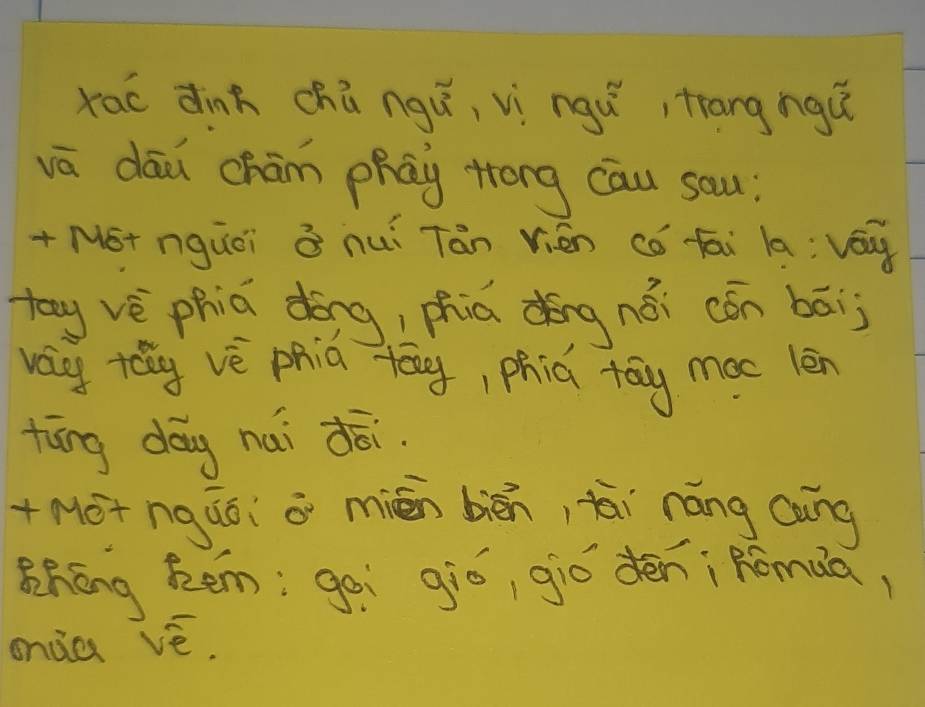 xác định chủ ngữ, vị ngữ, trạng ngữ
và dấu chấm phẩy trong câu sau:
+ Một người ở núi Tản Viên có tài lạ: vẫy
tay về phía đông, phía đông nổi cồn bãi;
vẫy tây về phía tây, phía tây mọc lên
từng dãy núi đồi.
+ Một người ở miền biển, tài năng cũng
không kém: gọi gió, gió đến; hô mưa,
mưa về.